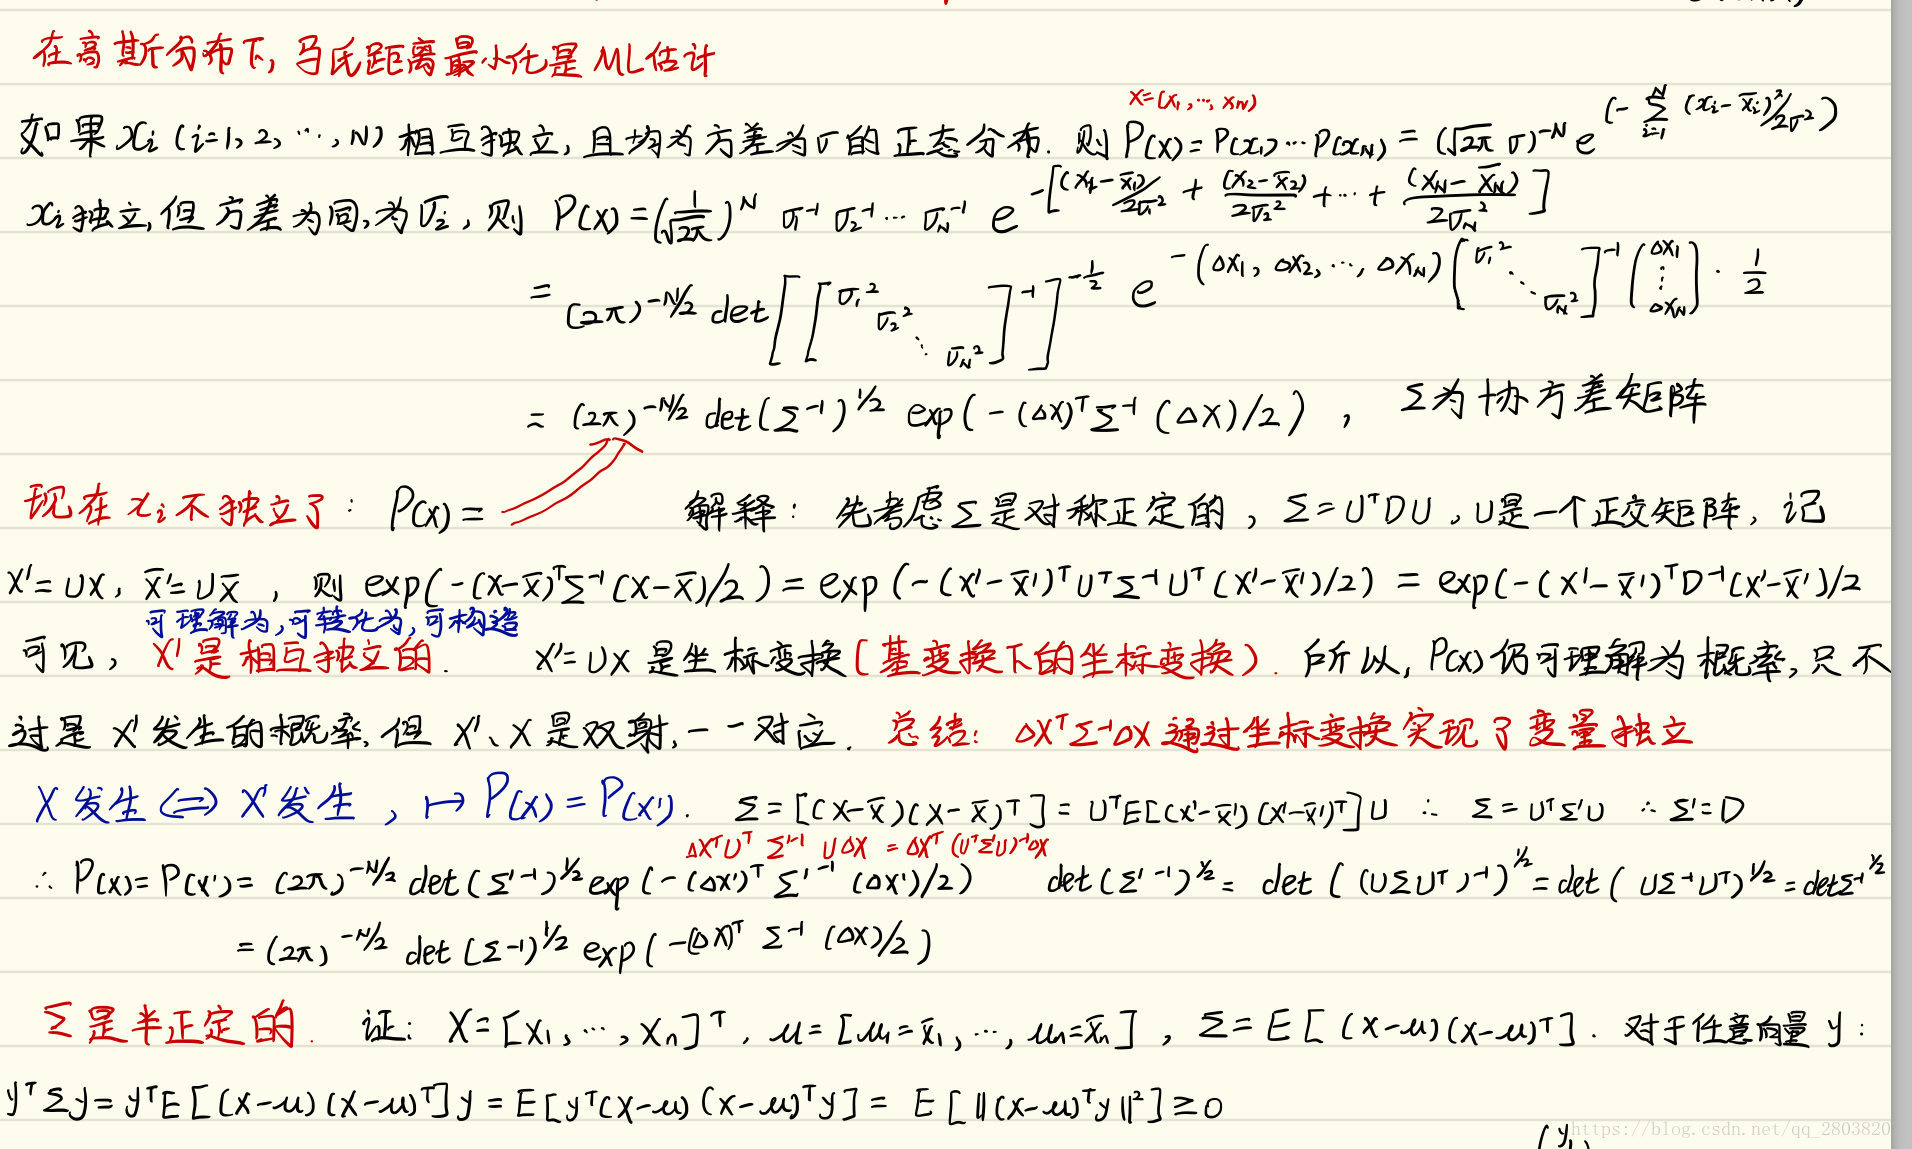 在高斯分布下, 马氏距离最小化是 ML估计
X=(x₁,…, x_N)
如果 xᵢ (i=1, 2, …, N) 相互独立, 且均为方差为σ的正态分布. 则 P(x)=P(x₁)…P(x_N) = (√2π σ)^-N e^(-∑_{i=1}^N (xᵢ-x̄ᵢ)²/2σ²)
xᵢ独立, 但方差为同,为σᵢ, 则 P(x)=(1/√2π)^N σ₁⁻¹ σ₂⁻¹ … σ_N⁻¹ e^-[(x₁-x̄₁)/2σ₁² + (x₂-x̄₂)/2σ₂² +…+ (x_N-x̄_N)/2σ_N²]
= (2π)^-N/2 det[[σ₁² σ₂² ⋱ σ_N²]⁻¹]^-1/2 e^-(Δx₁, Δx₂, …, Δx_N)[σ₁² ⋱ σ_N²]⁻¹(Δx₁ ⋮ Δx_N)·1/2
= (2π)^-N/2 det(Σ⁻¹)^1/2 exp(-(Δx)ᵀΣ⁻¹(Δx)/2) , Σ为协方差矩阵
现在 xᵢ不独立了: P(x)= 解释: 先考虑Σ是对称正定的, Σ=UᵀDU, U是一个正交矩阵, 记
x'=Ux, x̄'=Ux̄ , 则 exp(-(x-x̄)ᵀΣ⁻¹(x-x̄)/2)=exp(-(x'-x̄')ᵀUᵀΣ⁻¹Uᵀ(x'-x̄')/2) = exp(-(x'-x̄')ᵀD⁻¹(x'-x̄')/2
可理解为,可转化为,可构造
可见, X'是相互独立的. X'=UX 是坐标变换(基变换下的坐标变换). 所以, P(x)仍可理解为概率,只不
过是 X'发生的概率, 但 X'、X 是双射, 一一对应. 总结: ΔXᵀΣ⁻¹ΔX 通过坐标变换实现了变量独立
X 发生 ⇔ X'发生 , ↦ P(x)=P(x'). Σ=[(x-x̄)(x-x̄)ᵀ]=UᵀE[(x'-x̄')(x'-x̄')ᵀ]U ∴ Σ=UᵀΣ'U ∴ Σ'=D
ΔXᵀUᵀ Σ'⁻¹ UΔX = ΔXᵀ(UᵀΣ'U)⁻¹ΔX
∴ P(x)=P(x')= (2π)^-N/2 det(Σ'⁻¹)^1/2 exp(-(Δx')ᵀ Σ'⁻¹ (Δx')/2) det(Σ'⁻¹)^1/2 = det((UΣUᵀ)⁻¹)^1/2 = det(UΣ⁻¹Uᵀ)^1/2 = detΣ⁻¹^1/2
= (2π)^-N/2 det(Σ⁻¹)^1/2 exp(-(Δx)ᵀ Σ⁻¹ (Δx)/2)
Σ是半正定的. 证: X=[x₁, …, xₙ]ᵀ, μ=[μ₁=x̄₁, …, μₙ=x̄ₙ] , Σ=E[(x-μ)(x-μ)ᵀ]. 对于任意向量 y:
yᵀΣy=yᵀE[(x-μ)(x-μ)ᵀ]y=E[yᵀ(x-μ)(x-μ)ᵀy]= E[‖(x-μ)ᵀy‖²]≥0
https://blog.csdn.net/qq_2803820